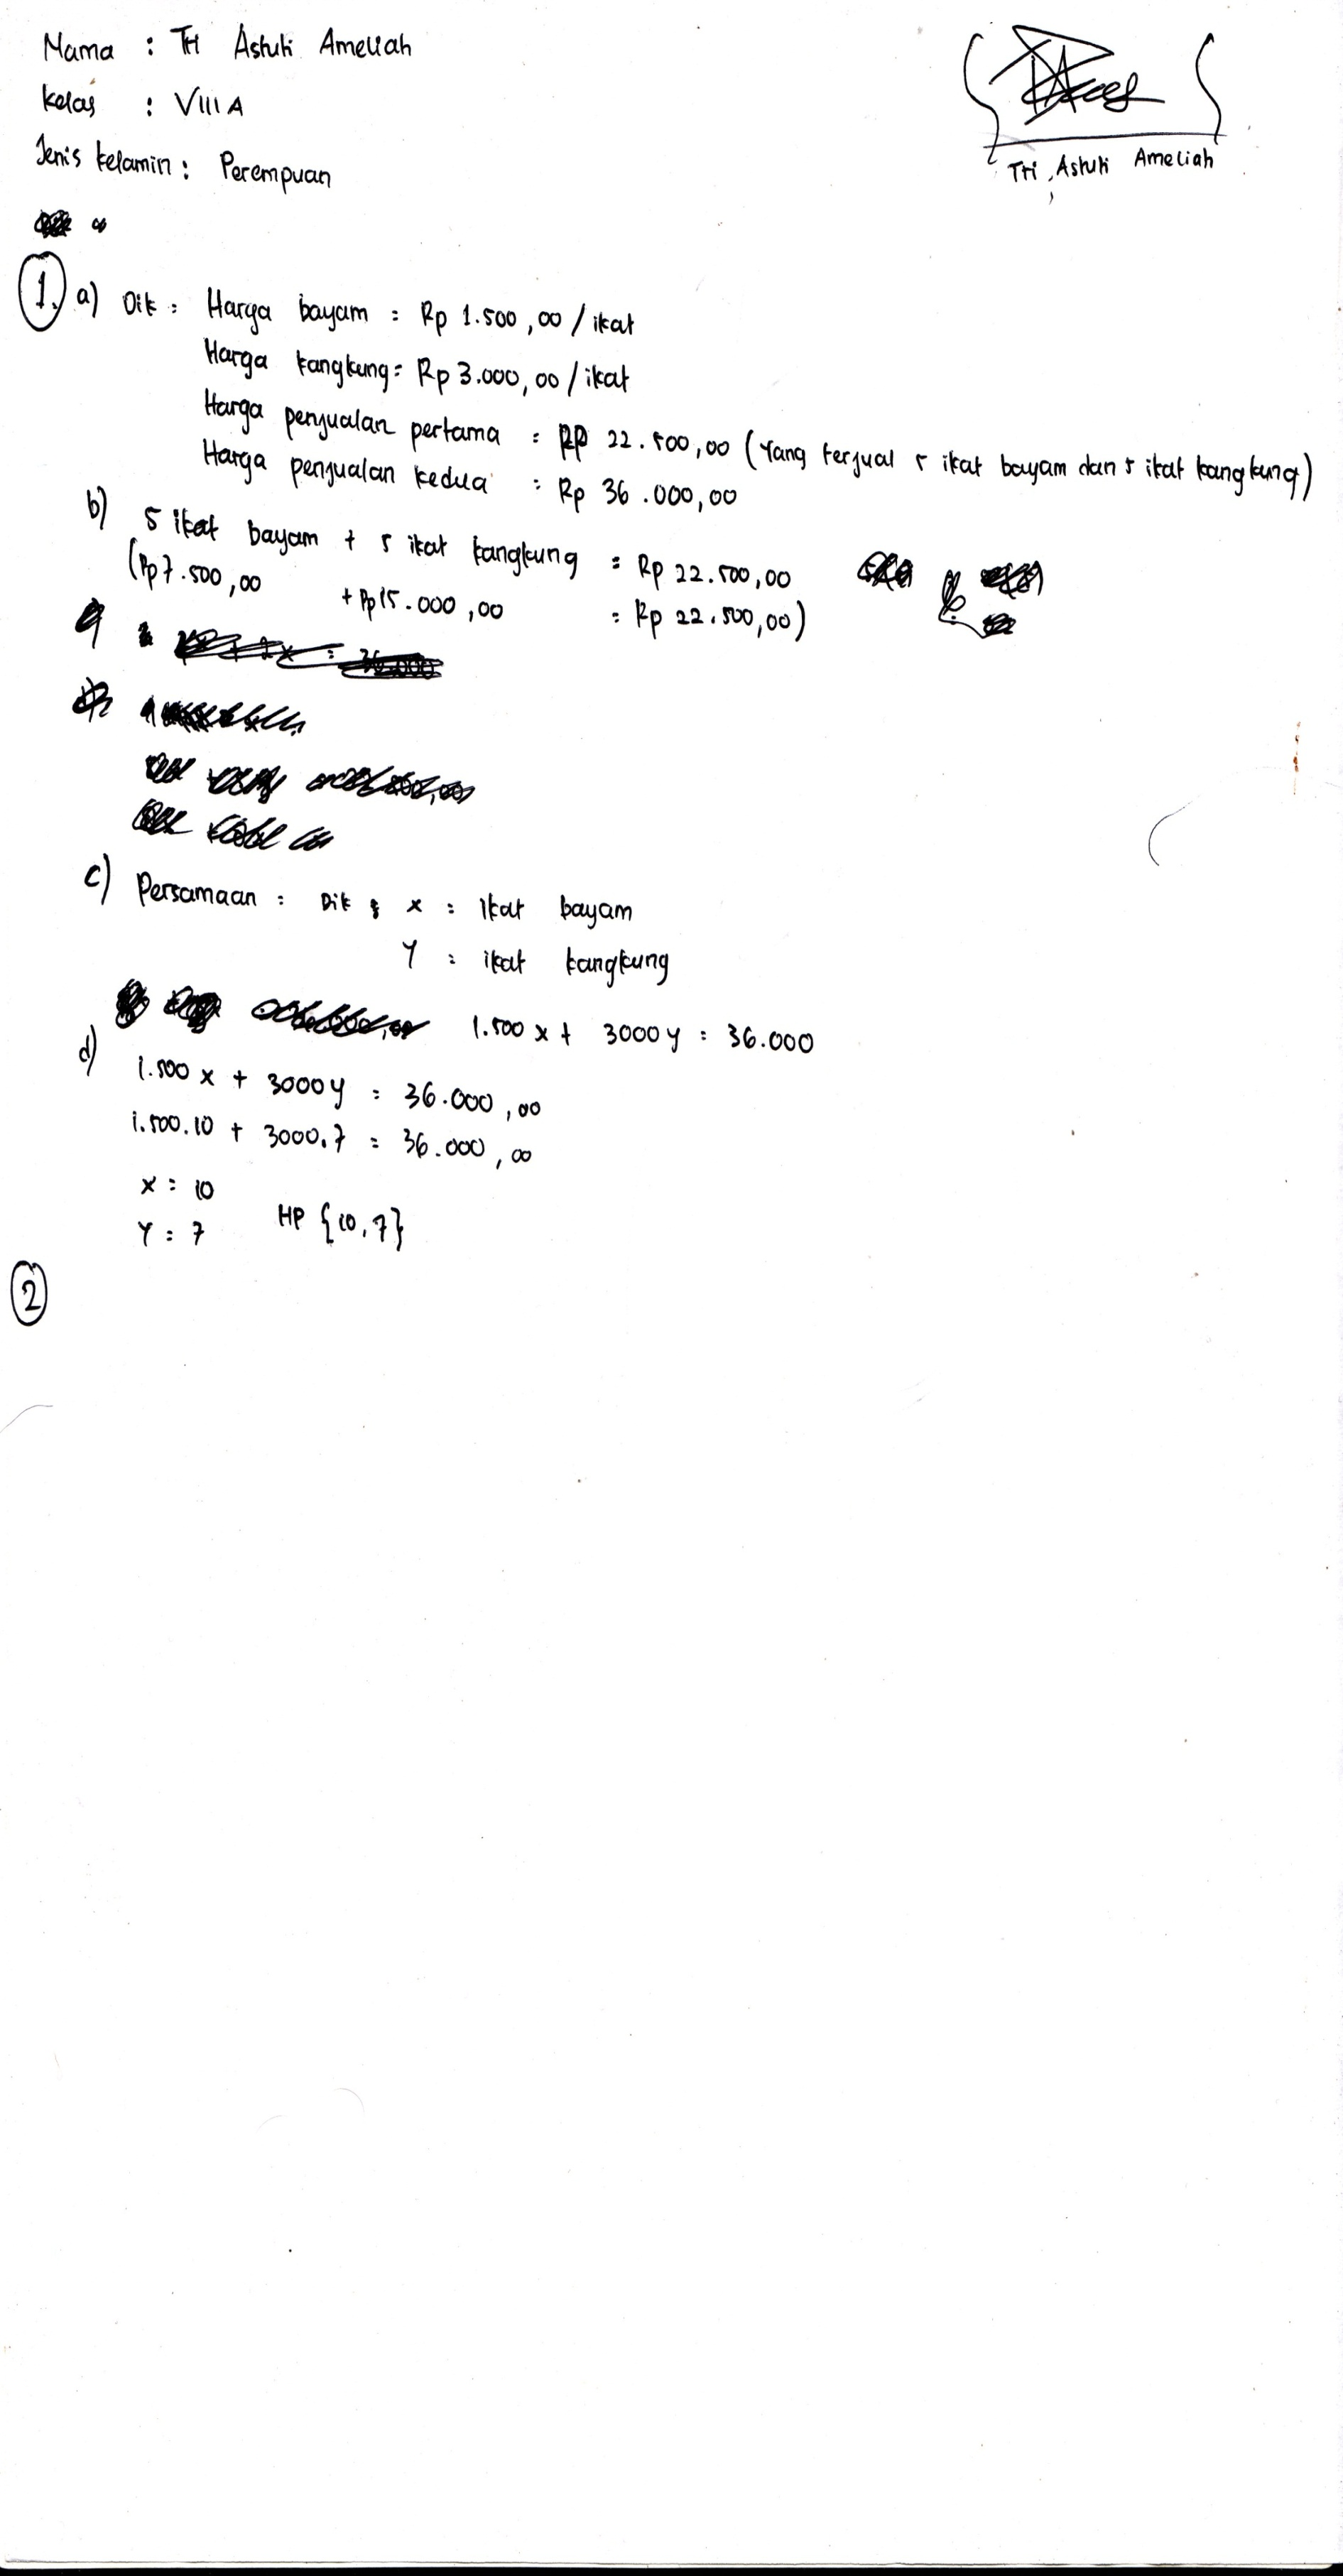 Nama : Tri Astuti Ameliah
Kelas : VIII A
Jenis kelamin : Perempuan
Tri Astuti Ameliah
1. a) Dik : Harga bayam : Rp 1.500,00 / ikat
Harga kangkung : Rp 3.000,00 / ikat
Harga penjualan pertama : Rp 22.500,00 (Yang terjual 5 ikat bayam dan 5 ikat kangkung)
Harga penjualan kedua : Rp 36.000,00
b) 5 ikat bayam + 5 ikat kangkung = Rp 22.500,00
(Rp 7.500,00 + Rp 15.000,00 = Rp 22.500,00)
c) Persamaan : Dik : x : ikat bayam
Y : ikat kangkung
1.500 x + 3000 y = 36.000
d) 1.500 x + 3000 y = 36.000,00
1.500.10 + 3000.7 = 36.000,00
x = 10
Y = 7 HP {10,7}
2